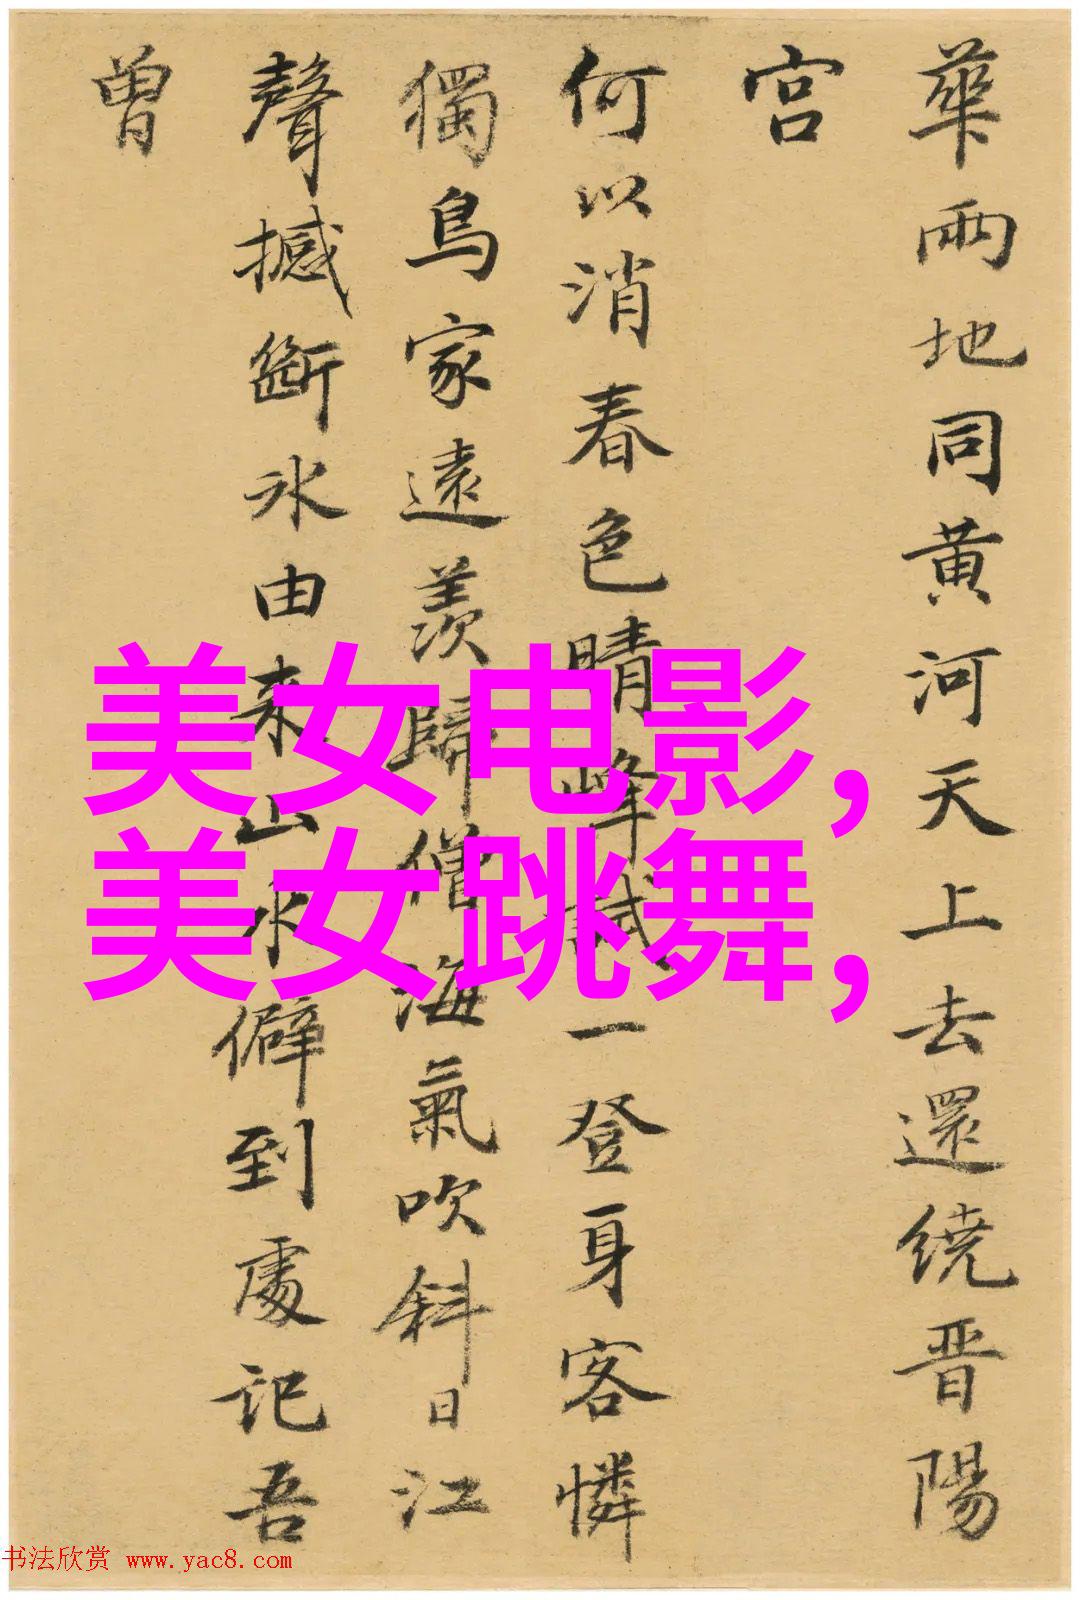 華兩地同黄河天上去還繞晋陽
宫
何以消春色晴峰試一登身客憐
獨鳥家遠羨歸僧海氣吹斜日江
聲撼斷冰由来山水僻到處記吾
曾
美女电影,
美女跳舞,
书法欣赏 www.yac8.com